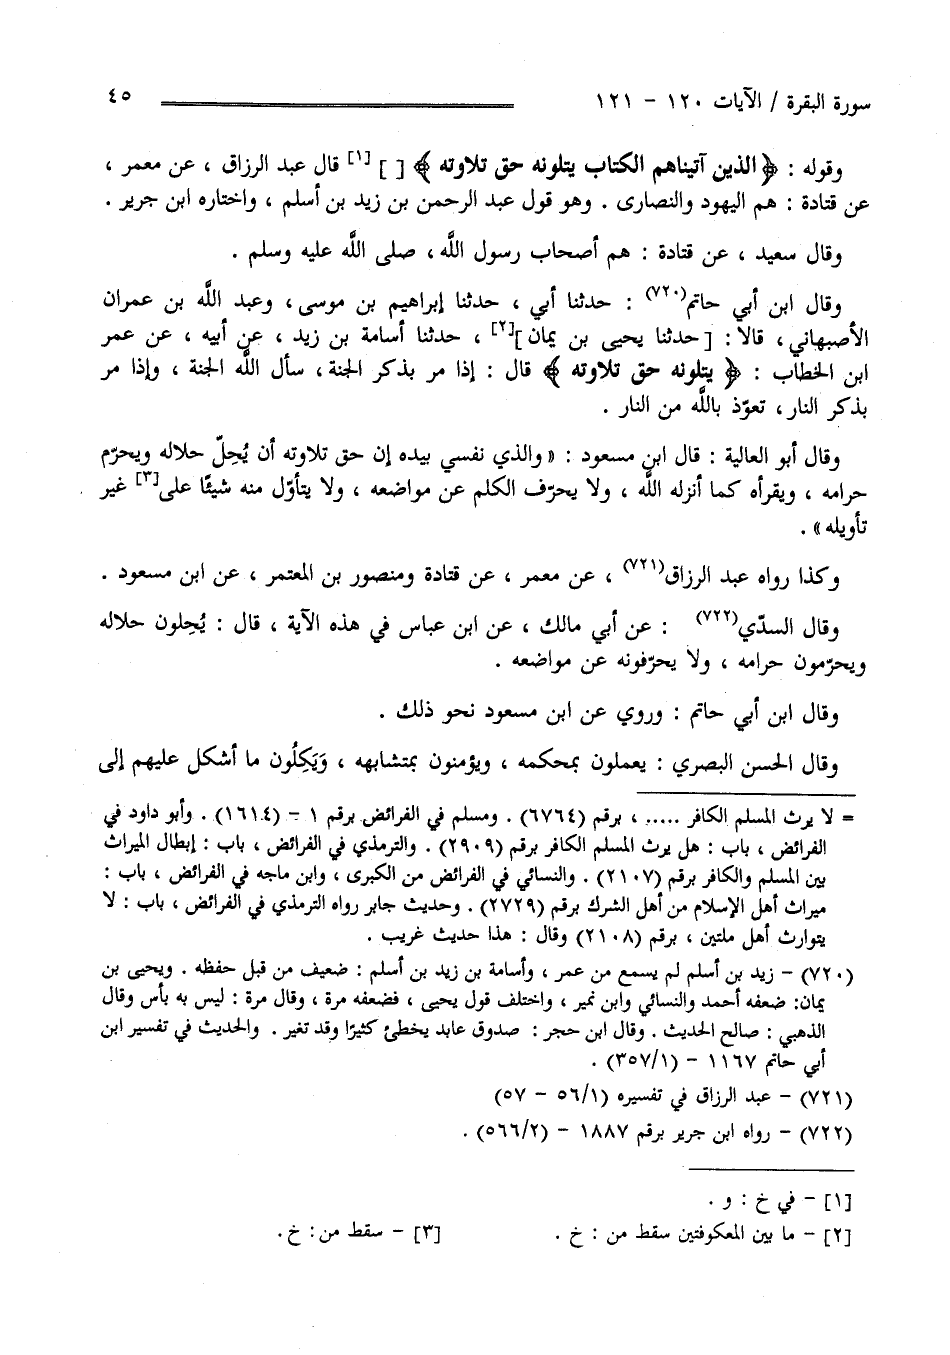 سورة البقرة / الآيات ١٢٠ - ١٢١ ٤٥
وقوله : ﴿ الذين آتيناهم الكتاب يتلونه حق تلاوته ﴾ [ ][١] قال عبد الرزاق ، عن معمر ،
عن قتادة : هم اليهود والنصارى . وهو قول عبد الرحمن بن زيد بن أسلم ، واختاره ابن جرير .
وقال سعيد ، عن قتادة : هم أصحاب رسول اللَّه ، صلى اللَّه عليه وسلم .
وقال ابن أبي حاتم(٧٢٠) : حدثنا أبي ، حدثنا إبراهيم بن موسى ، وعبد اللَّه بن عمران
الأصبهاني ، قالا : [ حدثنا يحيى بن يمان ][٢] ، حدثنا أسامة بن زيد ، عن أبيه ، عن عمر
ابن الخطاب : ﴿ يتلونه حق تلاوته ﴾ قال : إذا مر بذكر الجنة ، سأل اللَّه الجنة ، وإذا مر
بذكر النار ، تعوّذ باللَّه من النار .
وقال أبو العالية : قال ابن مسعود : « والذي نفسي بيده إن حق تلاوته أن يُحِلّ حلاله ويحرّم
حرامه ، ويقرأه كما أنزله اللَّه ، ولا يحرّف الكلم عن مواضعه ، ولا يتأوّل منه شيئًا على[٣] غير
تأويله » .
وكذا رواه عبد الرزاق(٧٢١) ، عن معمر ، عن قتادة ومنصور بن المعتمر ، عن ابن مسعود .
وقال السدّي(٧٢٢) : عن أبي مالك ، عن ابن عباس في هذه الآية ، قال : يُحِلون حلاله
ويحرّمون حرامه ، ولا يحرّفونه عن مواضعه .
وقال ابن أبي حاتم : وروي عن ابن مسعود نحو ذلك .
وقال الحسن البصري : يعملون بمحكمه ، ويؤمنون بمتشابهه ، وَيَكِلُون ما أشكل عليهم إلى
= لا يرث المسلم الكافر ..... ، برقم (٦٧٦٤) . ومسلم في الفرائض برقم ١ - (١٦١٤) . وأبو داود في
الفرائض ، باب : هل يرث المسلم الكافر برقم (٢٩٠٩) . والترمذي في الفرائض ، باب : إبطال الميراث
بين المسلم والكافر برقم (٢١٠٧) . والنسائي في الفرائض من الكبرى ، وابن ماجه في الفرائض ، باب :
ميراث أهل الإسلام من أهل الشرك برقم (٢٧٢٩) . وحديث جابر رواه الترمذي في الفرائض ، باب : لا
يتوارث أهل ملتين ، برقم (٢١٠٨) وقال : هذا حديث غريب .
(٧٢٠) - زيد بن أسلم لم يسمع من عمر ، وأسامة بن زيد بن أسلم : ضعيف من قبل حفظه . ويحيى بن
يمان : ضعفه أحمد والنسائي وابن نمير ، واختلف قول يحيى ، فضعفه مرة ، وقال مرة : ليس به بأس وقال
الذهبي : صالح الحديث . وقال ابن حجر : صدوق عابد يخطئ كثيرًا وقد تغير . والحديث في تفسير ابن
أبي حاتم ١١٦٧ - (٣٥٧/١) .
(٧٢١) - عبد الرزاق في تفسيره (٥٦/١ - ٥٧)
(٧٢٢) - رواه ابن جرير برقم ١٨٨٧ - (٥٦٦/٢) .
[١] - في خ : و .
[٢] - ما بين المعكوفتين سقط من : خ . [٣] - سقط من : خ .